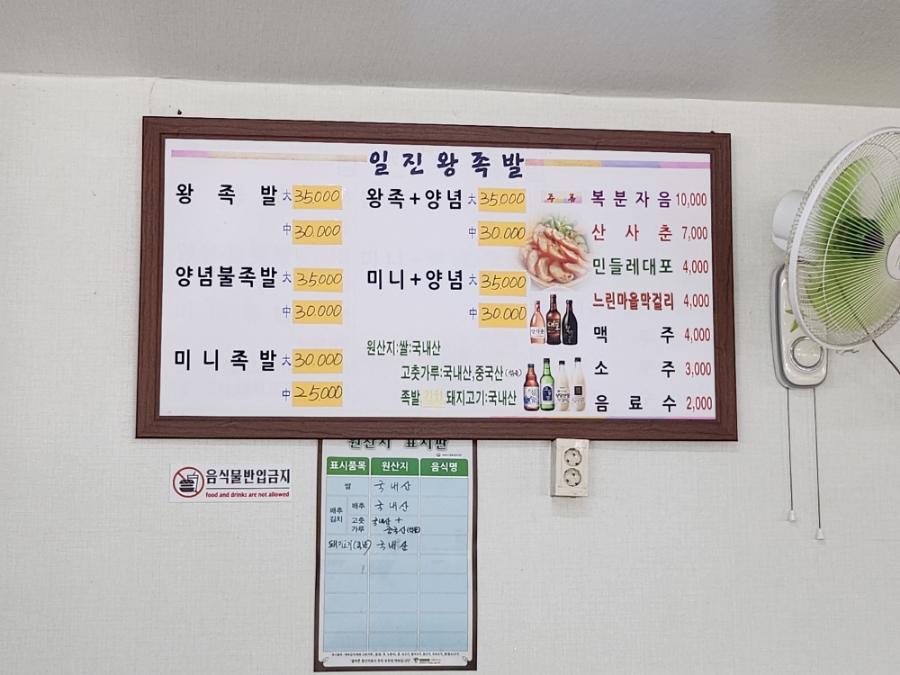 일진왕족발
왕족발 大 35000
中 30.000
양념불족발 大 35000
中 30.000
미니족발 大 30.000
中 25000
왕족+양념 大 35000
中 30.000
미니+양념 大 35000
中 30.000
원산지:쌀:국내산
고춧가루:국내산,중국산
족발,김치,돼지고기:국내산
주류
복분자음 10,000
산사춘 7,000
민들레대포 4,000
느린마을막걸리 4,000
맥주 4,000
소주 3,000
음료수 2,000
음식물반입금지
food and drinks are not allowed
원산지 표시판
표시품목 원산지 음식명
쌀 국내산
배추김치 배추 국내산
고춧가루 국내산 +
중국산
돼지고기 국내산